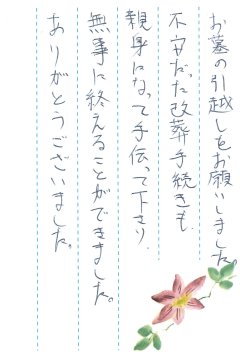 お墓の引越しをお願いしました。
不安だった改葬手続きも、
親身になって手伝って下さり、
無事に終えることができました。
ありがとうございました。